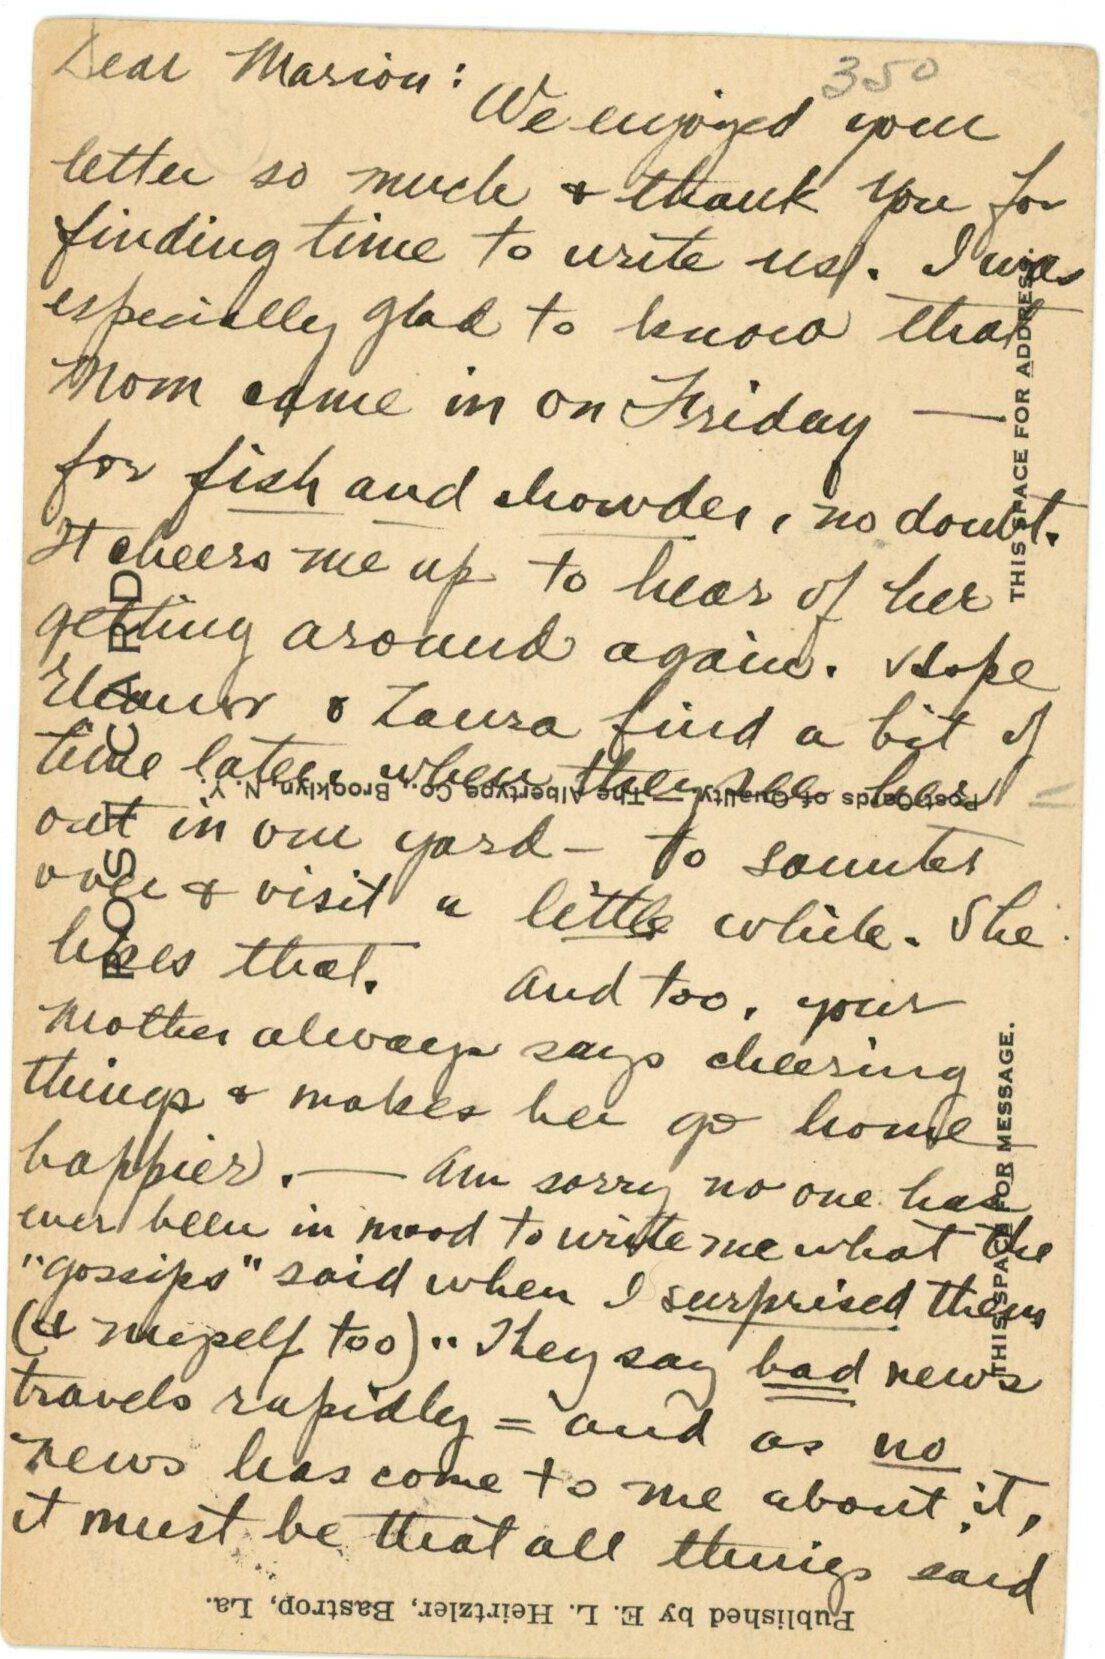 Dear Marion:
350
We enjoyed your
letter so much & thank you for
finding time to write us. I was
especially glad to know that
Mom came in on Friday —
for fish and chowder, no doubt.
It cheers me up to hear of her
getting around again. Hope
Eleanor & Laura find a bit of
time later when they see her
out in our yard – to saunter
over & visit a little while. She
likes that. And too, your
Mother always says cheering
things & makes her go home
happier. — Am sorry no one has
ever been in mood to write me what the
"gossips" said when I surprised them
(& myself too). They say bad news
travels rapidly = and as no
news has come to me about it,
it must be that all things said
POST CARD
THIS SPACE FOR ADDRESS.
THIS SPACE FOR MESSAGE.
Post Cards of Quality.—The Albertype Co., Brooklyn, N. Y.
Published by E. L. Heirtzler, Bastrop, La.